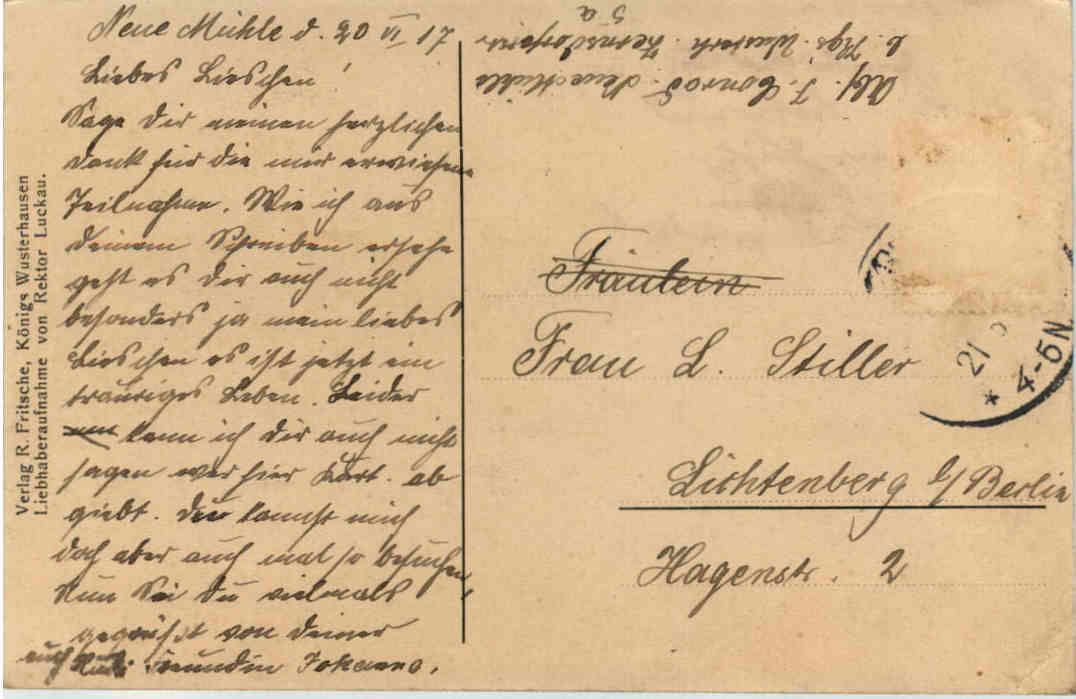 Neue Mühle d. 20 VI 17
Liebes Lieschen!
Sage Dir meinen herzlichen
Dank für die mir erwiesene
Teilnahme. Wie ich aus
Deinem Schreiben ersehe
geht es Dir auch nicht
besonders ja mein liebes
Lieschen es ist jetzt ein
trauriges Leben. Leider
kann ich Dir auch nicht
sagen wer hier Kart. ab
giebt. Du kannst mich
doch aber auch mal so besuchen,
Nun Sei Du vielmals
gegrüßt von Deiner
auch Freundin Johanna.
Abs. F. Conrad. Neue Mühle
b. Kgs. Wusterh.
5a
Fräulein
Frau L. Stiller
Lichtenberg b/Berlin
Hagenstr. 2
21
* 4-5N
Verlag R. Fritsche, Königs Wusterhausen
Liebhaberaufnahme von Rektor Luckau.